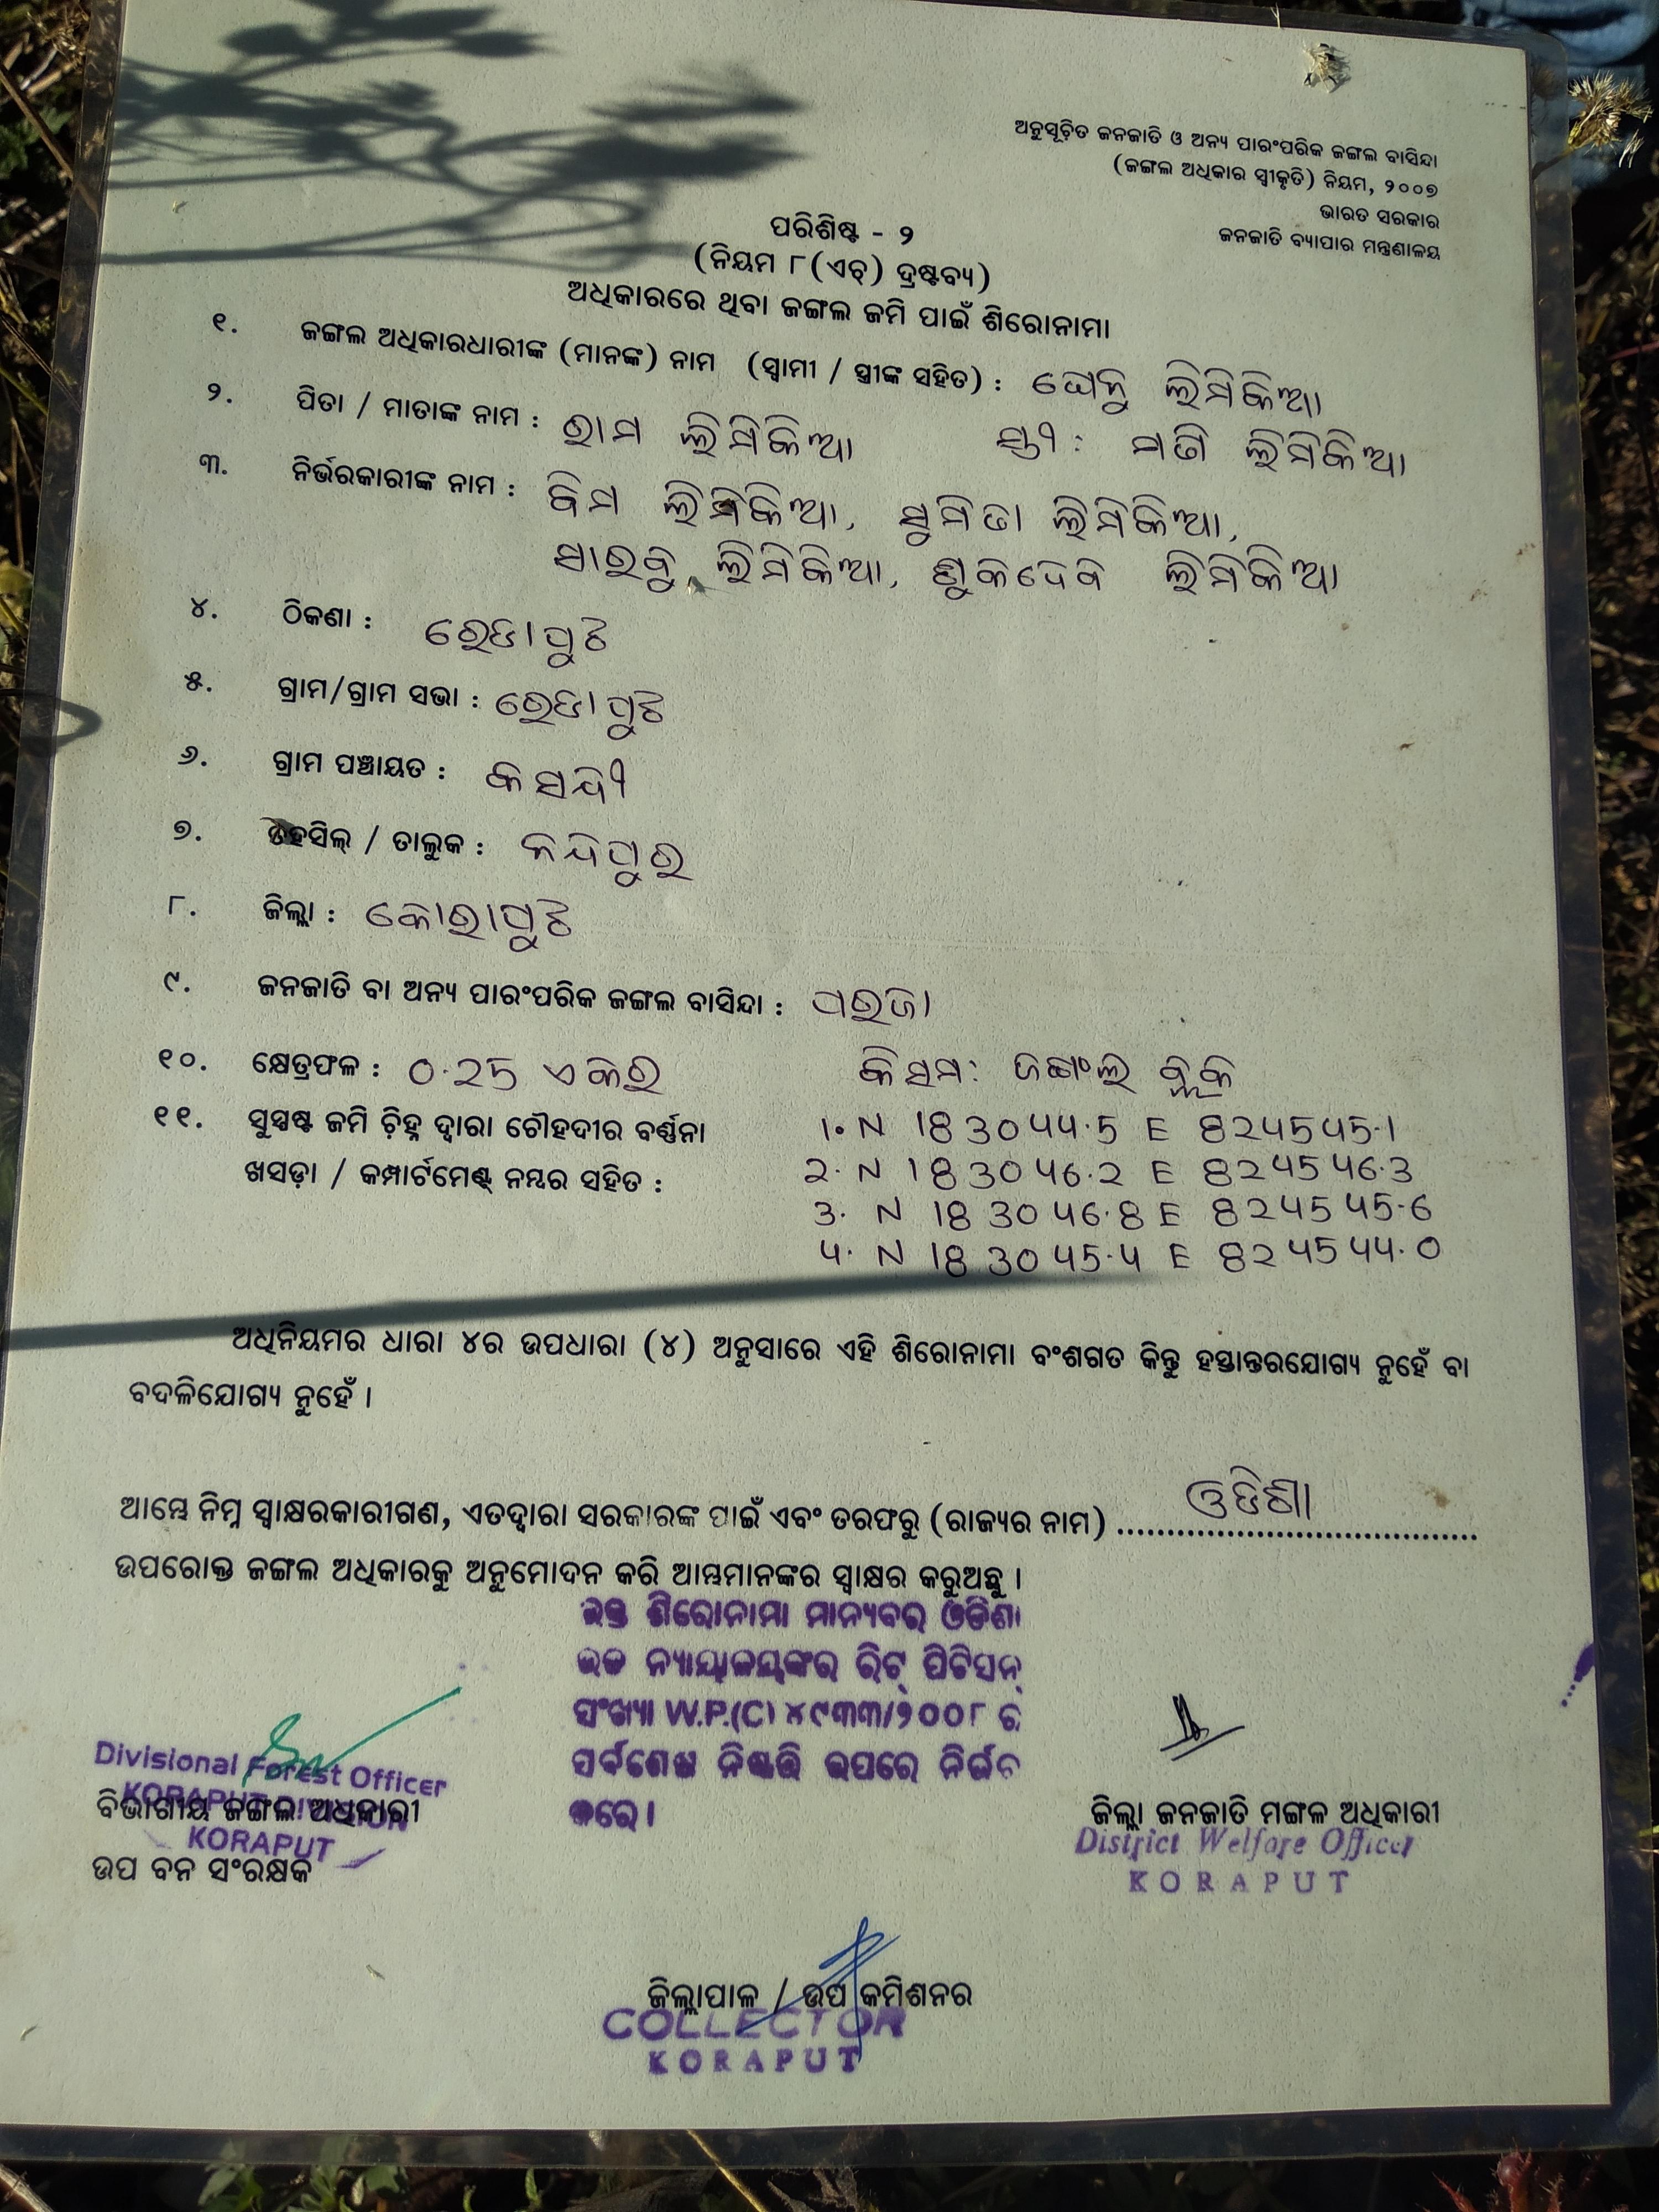 ଅନୁସୂଚିତ ଜନଜାତି ଓ ଅନ୍ୟ ପାରଂପରିକ ଜଙ୍ଗଲ ବାସିନ୍ଦା
(ଜଙ୍ଗଲ ଅଧିକାର ସ୍ୱୀକୃତି) ନିୟମ, ୨୦୦୭
ଭାରତ ସରକାର
ଜନଜାତି ବ୍ୟାପାର ମନ୍ତ୍ରଣାଳୟ
ପରିଶିଷ୍ଟ - ୨
(ନିୟମ ୮(ଏଚ୍) ଦ୍ରଷ୍ଟବ୍ୟ)
ଅଧିକାରରେ ଥିବା ଜଙ୍ଗଲ ଜମି ପାଇଁ ଶିରୋନାମା
୧. ଜଙ୍ଗଲ ଅଧିକାରଧାରୀଙ୍କ (ମାନଙ୍କ) ନାମ (ସ୍ୱାମୀ / ସ୍ତ୍ରୀଙ୍କ ସହିତ) : ଘେନୁ ଲିମିକିଆ
୨. ପିତା / ମାତାଙ୍କ ନାମ : ରାମ ଲିମିକିଆ ମତି ଲିମିକିଆ
୩. ନିର୍ଭରକାରୀଙ୍କ ନାମ : ବିମ ଲିମିକିଆ, ସୁମିତା ଲିମିକିଆ,
ସାରବୁ ଲିମିକିଆ, ଶୁକଦେବ ଲିମିକିଆ
୪. ଠିକଣା : ରେଡାପୁଟ
୫. ଗ୍ରାମ/ଗ୍ରାମ ସଭା : ରେଡାପୁଟ
୬. ଗ୍ରାମ ପଞ୍ଚାୟତ : କସନ୍ଦୀ
୭. ତହସିଲ୍ / ତାଲୁକ : କନ୍ଦିପୁର
୮. ଜିଲ୍ଲା : କୋରାପୁଟ
୯. ଜନଜାତି ବା ଅନ୍ୟ ପାରଂପରିକ ଜଙ୍ଗଲ ବାସିନ୍ଦା : ପରଜା
୧୦. କ୍ଷେତ୍ରଫଳ : 0.25 ଏକର କିସମ: ଜଙ୍ଗଲ ବ୍ଲକ
୧୧. ସୁସ୍ପଷ୍ଟ ଜମି ଚିହ୍ନ ଦ୍ୱାରା ଚୌହଦୀର ବର୍ଣ୍ଣନା 1. N 18 30 44.5 E 82 45 45.1
ଖସଡ଼ା / କମ୍ପାର୍ଟମେଣ୍ଟ୍ ନମ୍ବର ସହିତ : 2. N 18 30 46.2 E 82 45 46.3
3. N 18 30 46.8 E 82 45 45.6
4. N 18 30 45.4 E 82 45 44.0
ଅଧିନିୟମର ଧାରା ୪ର ଉପଧାରା (୪) ଅନୁସାରେ ଏହି ଶିରୋନାମା ବଂଶଗତ କିନ୍ତୁ ହସ୍ତାନ୍ତରଯୋଗ୍ୟ ନୁହେଁ ବା
ବଦଳିଯୋଗ୍ୟ ନୁହେଁ ।
ଆମ୍ଭେ ନିମ୍ନ ସ୍ୱାକ୍ଷରକାରୀଗଣ, ଏତଦ୍ୱାରା ସରକାରଙ୍କ ପାଇଁ ଏବଂ ତରଫରୁ (ରାଜ୍ୟର ନାମ) ଓଡିଶା
ଉପରୋକ୍ତ ଜଙ୍ଗଲ ଅଧିକାରକୁ ଅନୁମୋଦନ କରି ଆମ୍ଭମାନଙ୍କର ସ୍ୱାକ୍ଷର କରୁଅଛୁ ।
ଉକ୍ତ ଶିରୋନାମା ମାନ୍ୟବର ଓଡିଶା
ଉଚ୍ଚ ନ୍ୟାୟାଳୟଙ୍କର ରିଟ୍ ପିଟିସନ୍
ସଂଖ୍ୟା W.P.(C) ୪୯୩୩/୨୦୦୮ ର
ସର୍ବଶେଷ ନିଷ୍ପତ୍ତି ଉପରେ ନିର୍ଭର
କରେ ।
Divisional Forest Officer
KORAPUT DIVISION
ବିଭାଗୀୟ ଜଙ୍ଗଲ ଅଧିକାରୀ
KORAPUT
ଉପ ବନ ସଂରକ୍ଷକ
ଜିଲ୍ଲା ଜନଜାତି ମଙ୍ଗଳ ଅଧିକାରୀ
District Welfare Officer
KORAPUT
ଜିଲ୍ଲାପାଳ / ଉପ କମିଶନର
COLLECTOR
KORAPUT